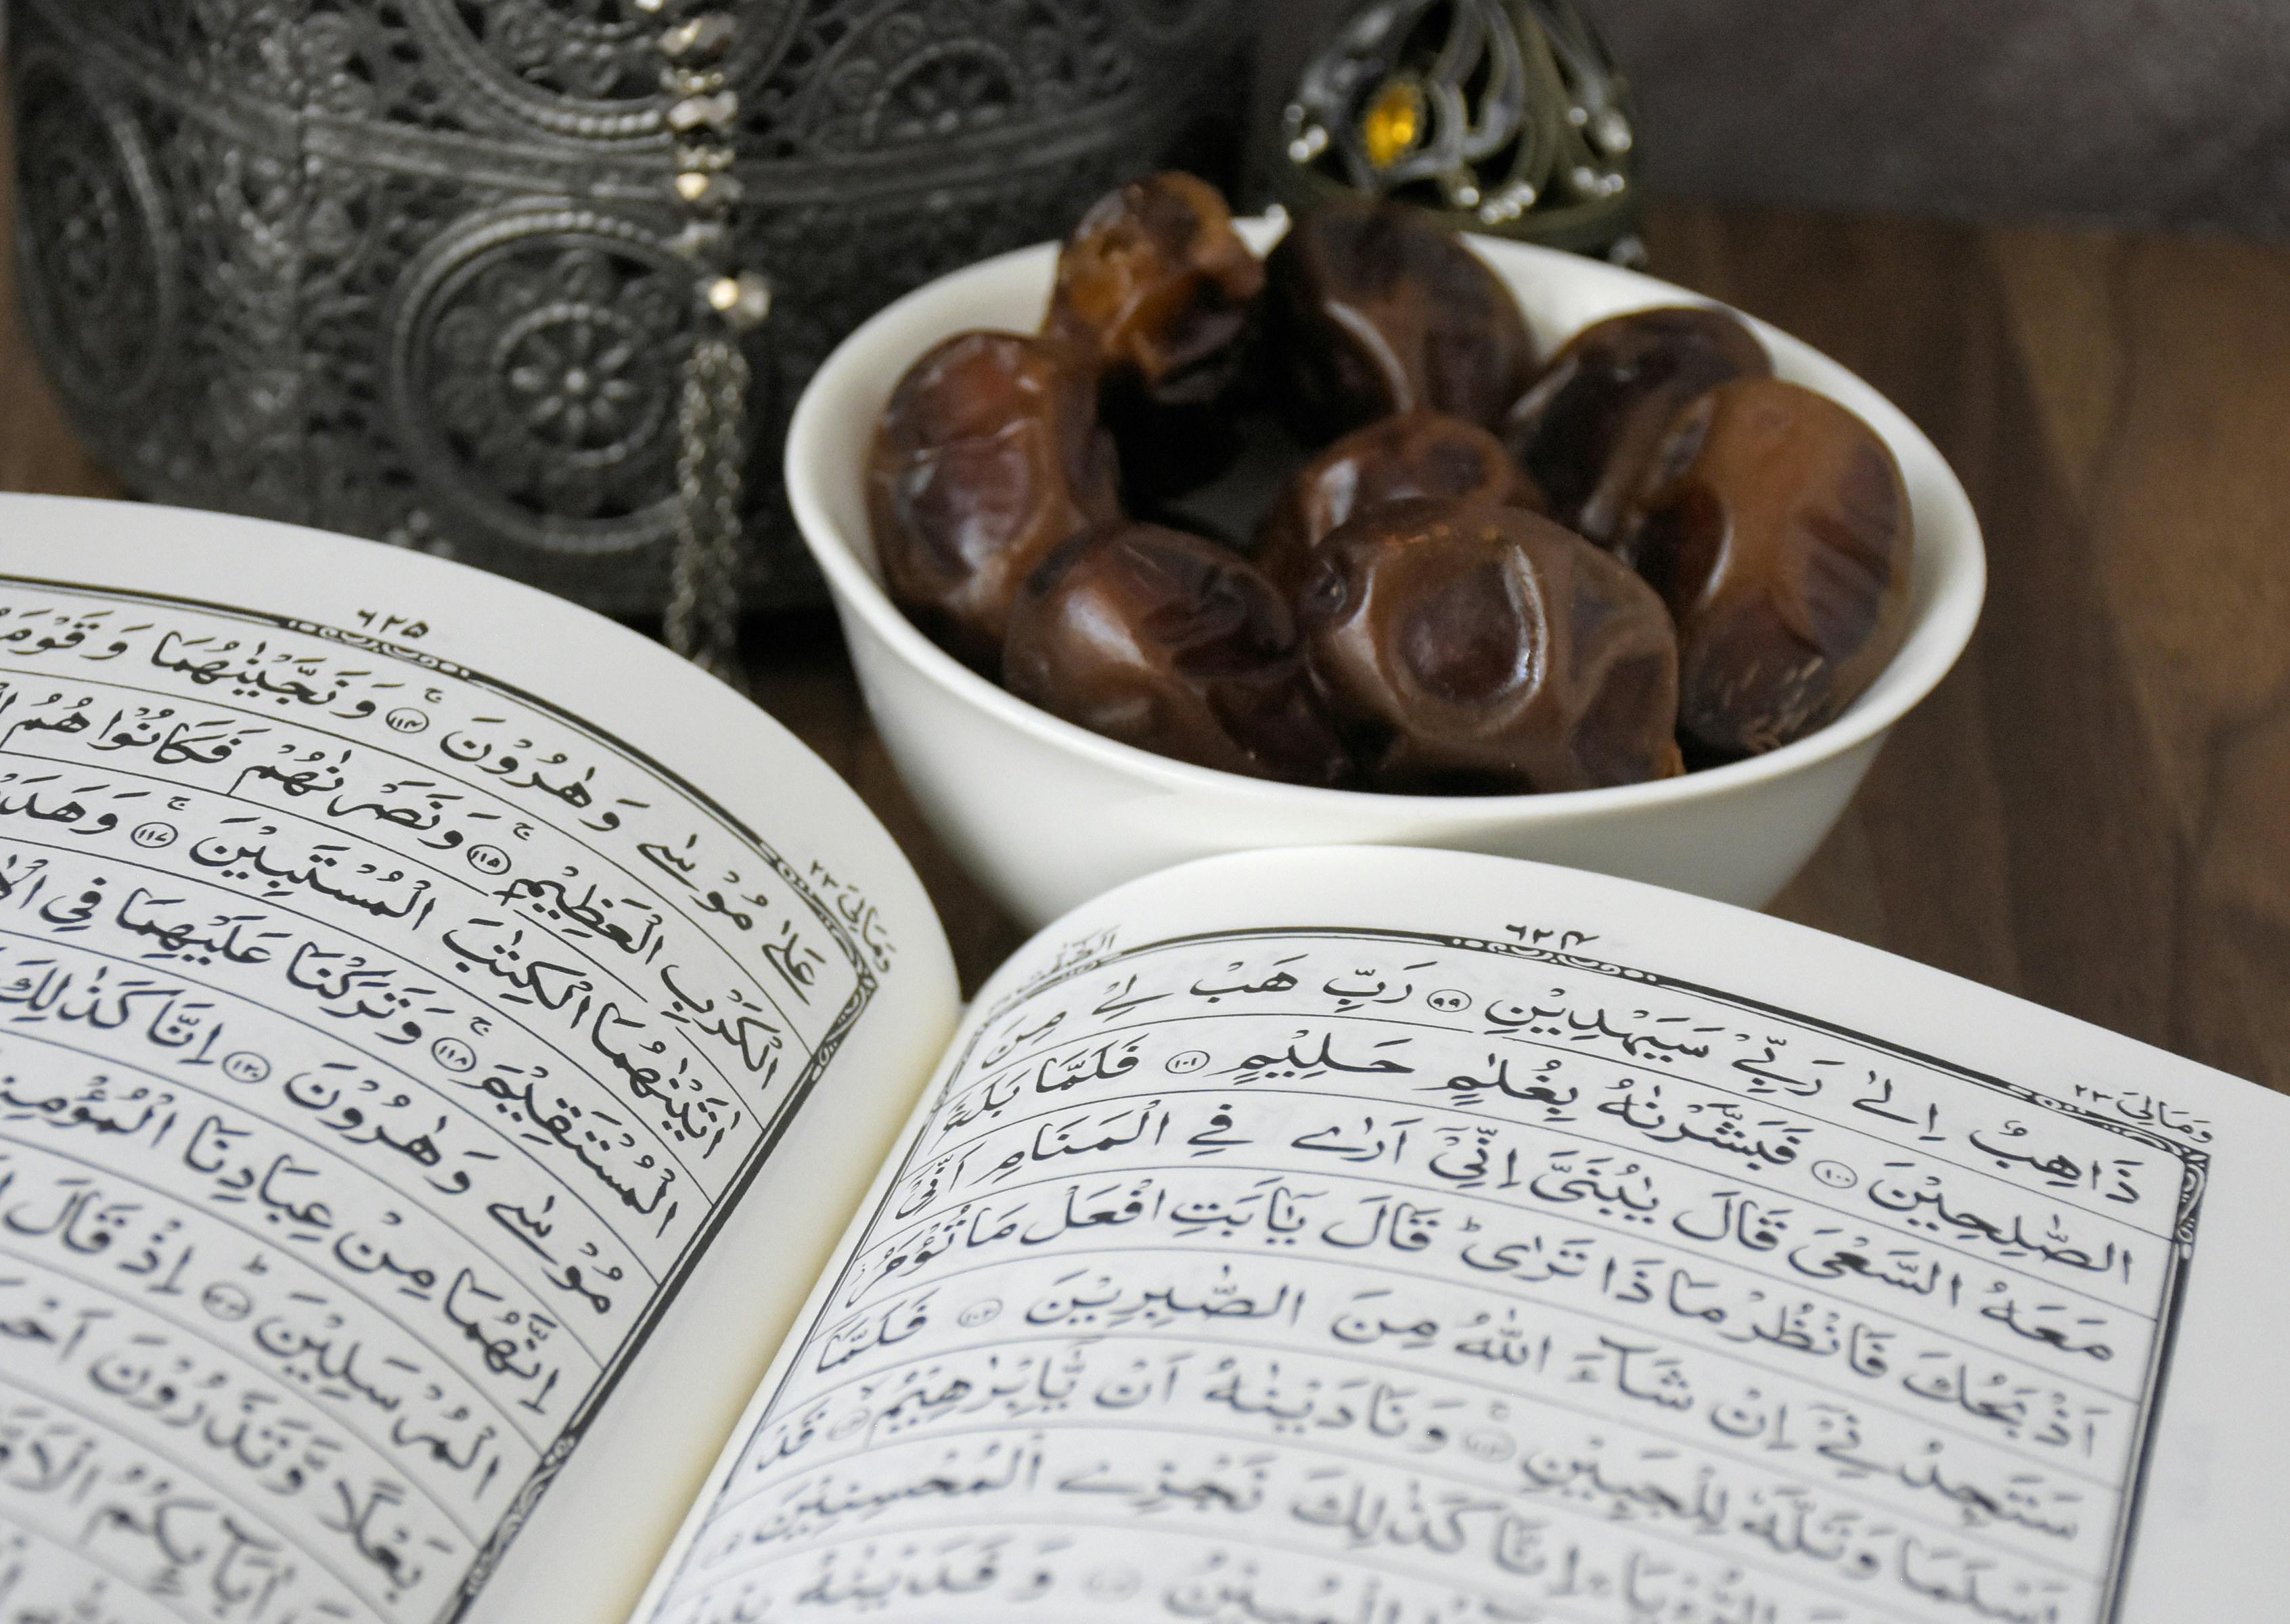 وَمَالِيَ ٢٣
٦٢٤
ذَاهِبٌ اِلٰى رَبِّىْ سَيَهْدِيْنِ ﴿٩٩﴾ رَبِّ هَبْ لِىْ مِنَ
الصّٰلِحِيْنَ ﴿١٠٠﴾ فَبَشَّرْنٰهُ بِغُلٰمٍ حَلِيْمٍ ﴿١٠١﴾ فَلَمَّا بَلَغَ
مَعَهُ السَّعْىَ قَالَ يٰبُنَىَّ اِنِّىْٓ اَرٰى فِى الْمَنَامِ اَنِّىْٓ
اَذْبَحُكَ فَانْظُرْ مَاذَا تَرٰىؕ قَالَ يٰٓاَبَتِ افْعَلْ مَا تُؤْمَرُ
سَتَجِدُنِىْٓ اِنْ شَآءَ اللّٰهُ مِنَ الصّٰبِرِيْنَ ﴿١٠٢﴾ فَلَمَّآ
اَسْلَمَا وَتَلَّهٗ لِلْجَبِيْنِ ﴿١٠٣﴾ۚ وَنَادَيْنٰهُ اَنْ يّٰٓاِبْرٰهِيْمُ ﴿١٠٤﴾ۙ قَدْ
اِنَّا كَذٰلِكَ نَجْزِى الْمُحْسِنِيْنَ
وَفَدَيْنٰهُ
وَمَالِيَ ٢٣
٦٢٥
عَلٰى مُوْسٰى وَهٰرُوْنَ ﴿١١٤﴾ۚ وَنَجَّيْنٰهُمَا وَقَوْمَ
الْكَرْبِ الْعَظِيْمِ ﴿١١٥﴾ۚ وَنَصَرْنٰهُمْ فَكَانُوْا هُمُ
اٰتَيْنٰهُمَا الْكِتٰبَ الْمُسْتَبِيْنَ ﴿١١٧﴾ۚ وَهَدَ
الْمُسْتَقِيْمَ ﴿١١٨﴾ۚ وَتَرَكْنَا عَلَيْهِمَا فِى
مُوْسٰى وَهٰرُوْنَ ﴿١٢٠﴾ اِنَّا كَذٰلِكَ
اِنَّهُمَا مِنْ عِبَادِنَا الْمُؤْمِنِ
الْمُرْسَلِيْنَ ﴿١٢٣﴾ؕ اِذْ قَالَ
بَعْلًا وَّتَذَرُوْنَ
اٰبَآئِكُمُ